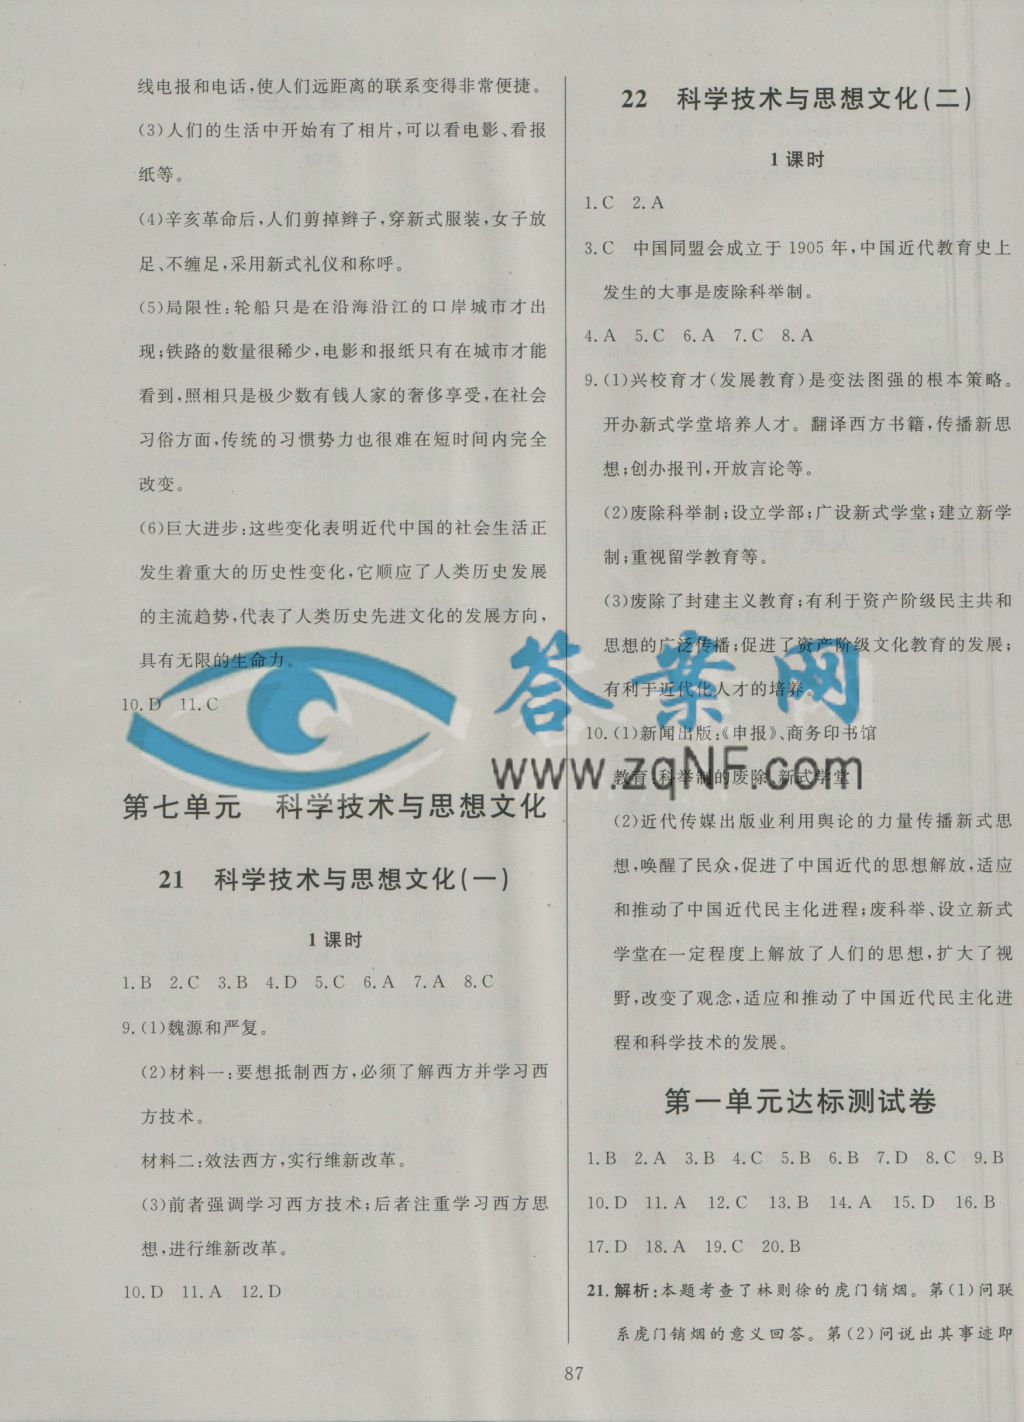 线电报和电话,使人们远距离的联系变得非常便捷。
(3)人们的生活中开始有了相片,可以看电影、看报
纸等。
(4)辛亥革命后,人们剪掉辫子,穿新式服装,女子放
足、不缠足,采用新式礼仪和称呼。
(5)局限性:轮船只是在沿海沿江的口岸城市才出
现;铁路的数量很稀少,电影和报纸只有在城市才能
看到,照相只是极少数有钱人家的奢侈享受,在社会
习俗方面,传统的习惯势力也很难在短时间内完全
改变。
(6)巨大进步:这些变化表明近代中国的社会生活正
发生着重大的历史性变化,它顺应了人类历史发展
的主流趋势,代表了人类历史先进文化的发展方向,
具有无限的生命力。
10.D 11.C
第七单元 科学技术与思想文化
21 科学技术与思想文化(一)
1课时
1.B 2.C 3.B 4.D 5.C 6.A 7.A 8.C
9.(1)魏源和严复。
(2)材料一:要想抵制西方,必须了解西方并学习西
方技术。
材料二:效法西方,实行维新改革。
(3)前者强调学习西方技术;后者注重学习西方思
想,进行维新改革。
10.D 11.A 12.D
22 科学技术与思想文化(二)
1课时
1.C 2.A
3.C 中国同盟会成立于1905年,中国近代教育史上
发生的大事是废除科举制。
4.A 5.C 6.A 7.C 8.A
9.(1)兴校育才(发展教育)是变法图强的根本策略。
开办新式学堂培养人才。翻译西方书籍,传播新思
想;创办报刊,开放言论等。
(2)废除科举制;设立学部;广设新式学堂;建立新学
制;重视留学教育等。
(3)废除了封建主义教育;有利于资产阶级民主共和
思想的广泛传播;促进了资产阶级文化教育的发展;
有利于近代化人才的培养。
10.(1)新闻出版:《申报》、商务印书馆
教育:科举制的废除、新式学堂
(2)近代传媒出版业利用舆论的力量传播新式思
想,唤醒了民众,促进了中国近代的思想解放,适应
和推动了中国近代民主化进程;废科举、设立新式
学堂在一定程度上解放了人们的思想,扩大了视
野,改变了观念,适应和推动了中国近代民主化进
程和科学技术的发展。
第一单元达标测试卷
1.B 2.A 3.B 4.C 5.B 6.B 7.D 8.C 9.B
10.D 11.A 12.C 13.B 14.A 15.D 16.B
17.D 18.A 19.C 20.B
21.解析:本题考查了林则徐的虎门销烟。第(1)问联
系虎门销烟的意义回答。第(2)问说出其事迹即
87
答案网
www.zqNF.com